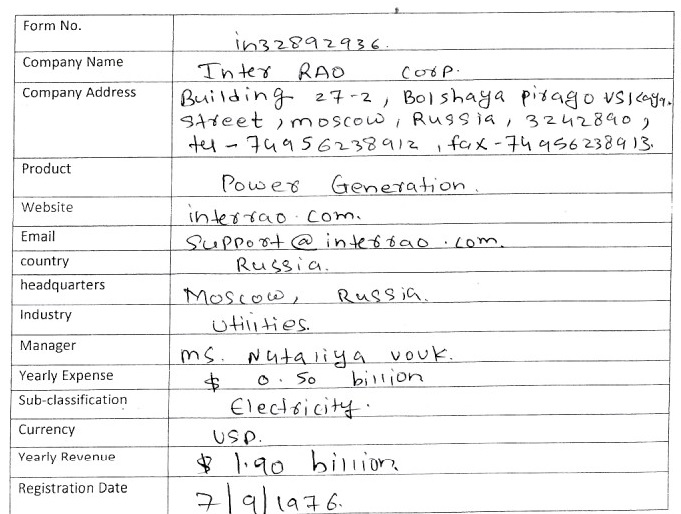 Form No. in32892936.
Company Name Inter RAO Corp.
Company Address Building 27-2, Bolshaya piragovskaya.
street, moscow, Russia, 3242890,
tel - 74956238912, fax - 74956238913.
Product Power Generation.
Website interrao.com.
Email support@interrao.com.
country Russia.
headquarters Moscow, Russia.
Industry Utilities.
Manager ms. Nataliya vovk.
Yearly Expense $ 0.50 billion
Sub-classification Electricity.
Currency USD.
Yearly Revenue $ 1.90 billion.
Registration Date 7/9/1976.